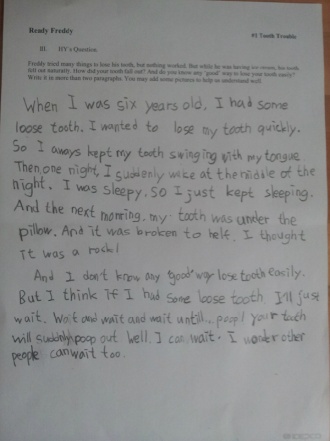 Ready Freddy
#1 Tooth Trouble
III. HY's Question.
Freddy tried many things to lose his tooth, but nothing worked. But while he was having ice cream, his tooth
fell out naturally. How did your tooth fall out? And do you know any 'good' way to lose your tooth easily?
Write it in more than two paragraphs. You may add some pictures to help us understand well.
When I was six years old, I had some
loose tooth. I wanted to lose my tooth quickly.
So I aways kept my tooth swinging with my tongue
Then one night, I suddenly wake at the middle of the
night. I was sleepy. So I just kept sleeping.
And the next morning. my tooth was under the
pillow. And it was broken to helf. I thought
it was a rock!
And I don't know any good way lose tooth easily.
But I think if I had some loose tooth I'll just
wait. Wait and wait and wait until... poop! your tooth
will suddnly poop out well. I can wait. I wonder other
people can wait too.